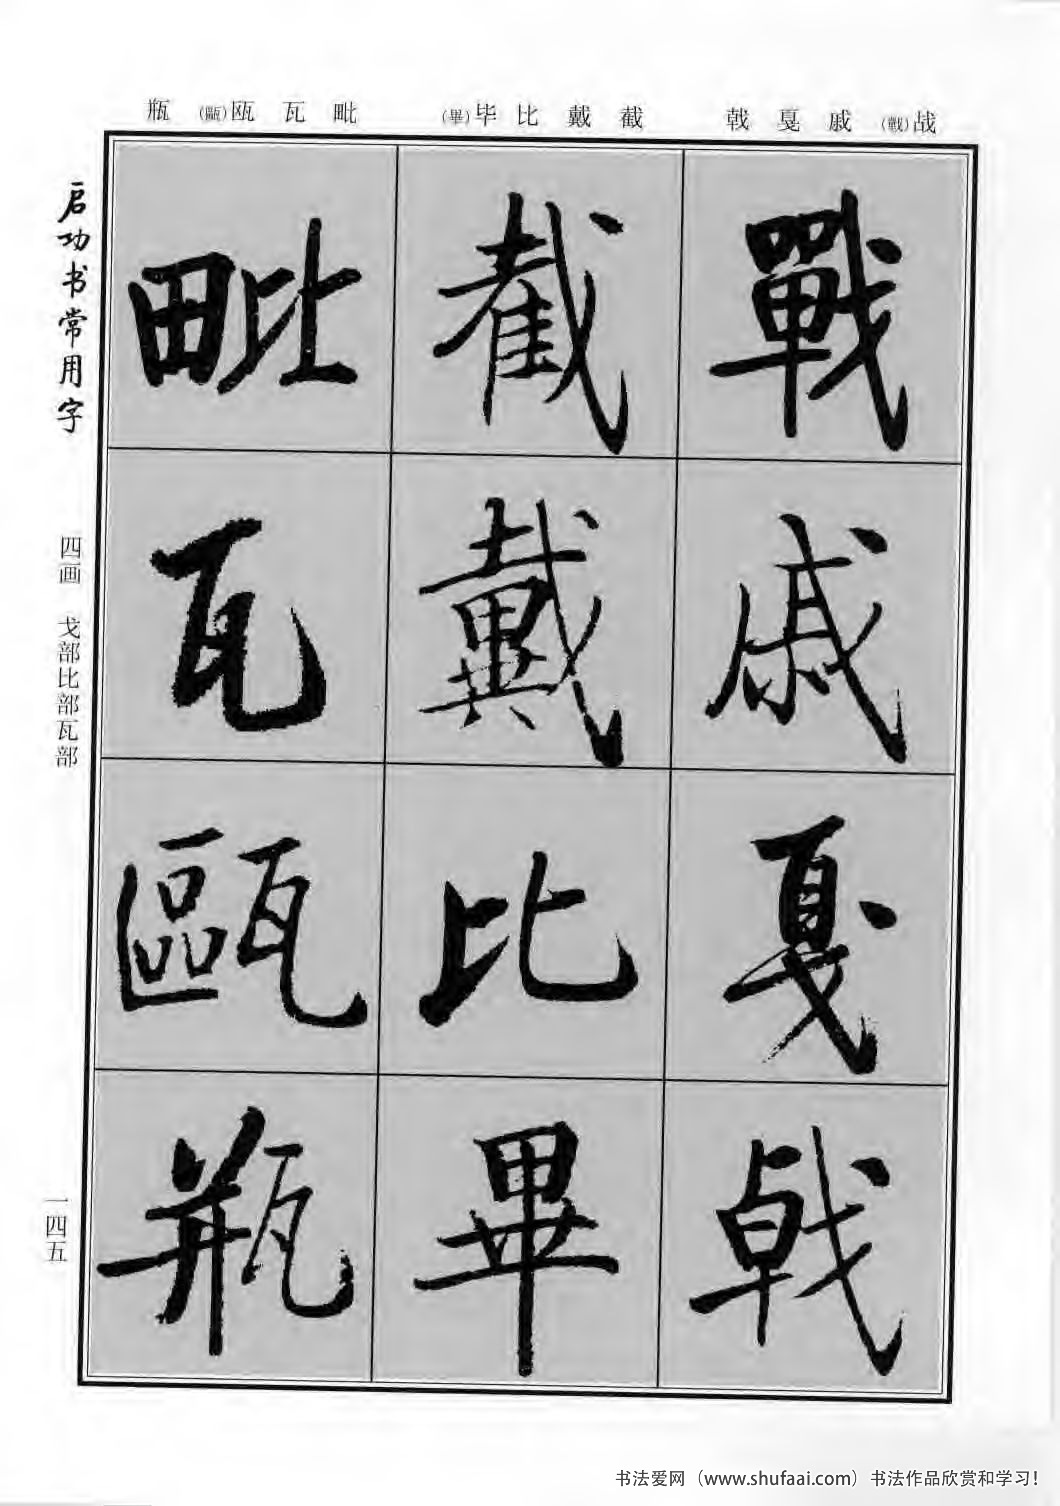 战(戰) 戚 戛 戟
截 戴 比 毕(畢)
毗 瓦 瓯(甌) 瓶
戰
戚
戛
戟
截
戴
比
畢
毗
瓦
甌
瓶
启功书常用字
四画 戈部比部瓦部
一四五
书法爱网（www.shufaai.com）书法作品欣赏和学习！